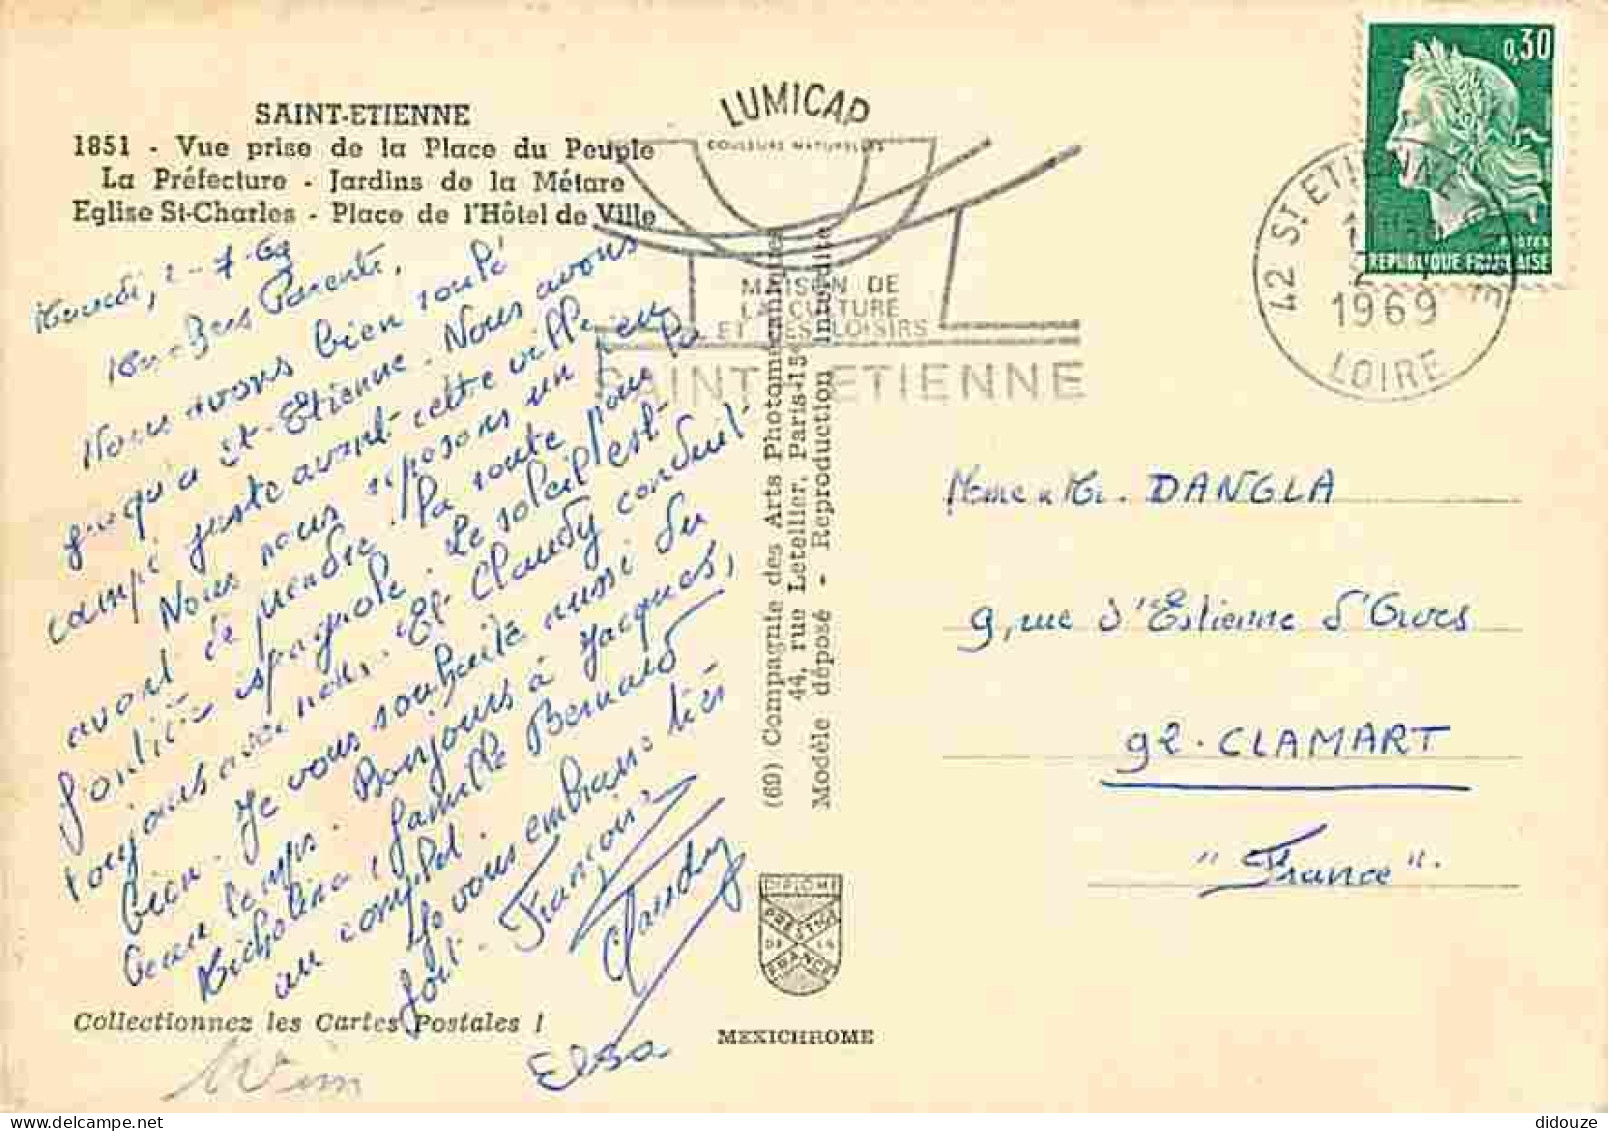 SAINT-ETIENNE
1851 - Vue prise de la Place du Peuple
La Préfecture - Jardins de la Métare
Eglise St-Charles - Place de l'Hôtel de Ville
2-7-69
Parents,
Nous avons bien roulé
jusqu'a St-Etienne. Nous avons
campé juste avant cette ville
Nous nous reposons un peu
avant de prendre la route pour la
espagnole. Le soleil est
toujours avec nous. Et Claudy conduit
bien. Je vous souhaite aussi du
beau temps. Bonjours à Jacques,
Micheline, famille Bernard
au complet.
Je vous embrasse très
fort. François
Claudy
Elsa
Collectionnez les Cartes Postales !
(69) Compagnie des Arts Photomécaniques
44, rue Letellier, Paris-15e
Modèle déposé - Reproduction Interdite
LUMICAP
COULEURS NATURELLES
MAISON DE
LA CULTURE
ET DES LOISIRS
SAINT-ETIENNE
DIPLOME
PRESTIGE
DE LA
FRANCE
MEXICHROME
0,30
POSTES
REPUBLIQUE FRANÇAISE
42 ST ETIENNE
1969
LOIRE
Mme & Mr. DANGLA
9, rue d'Estienne d'Orves
92. CLAMART
"France".
didouze